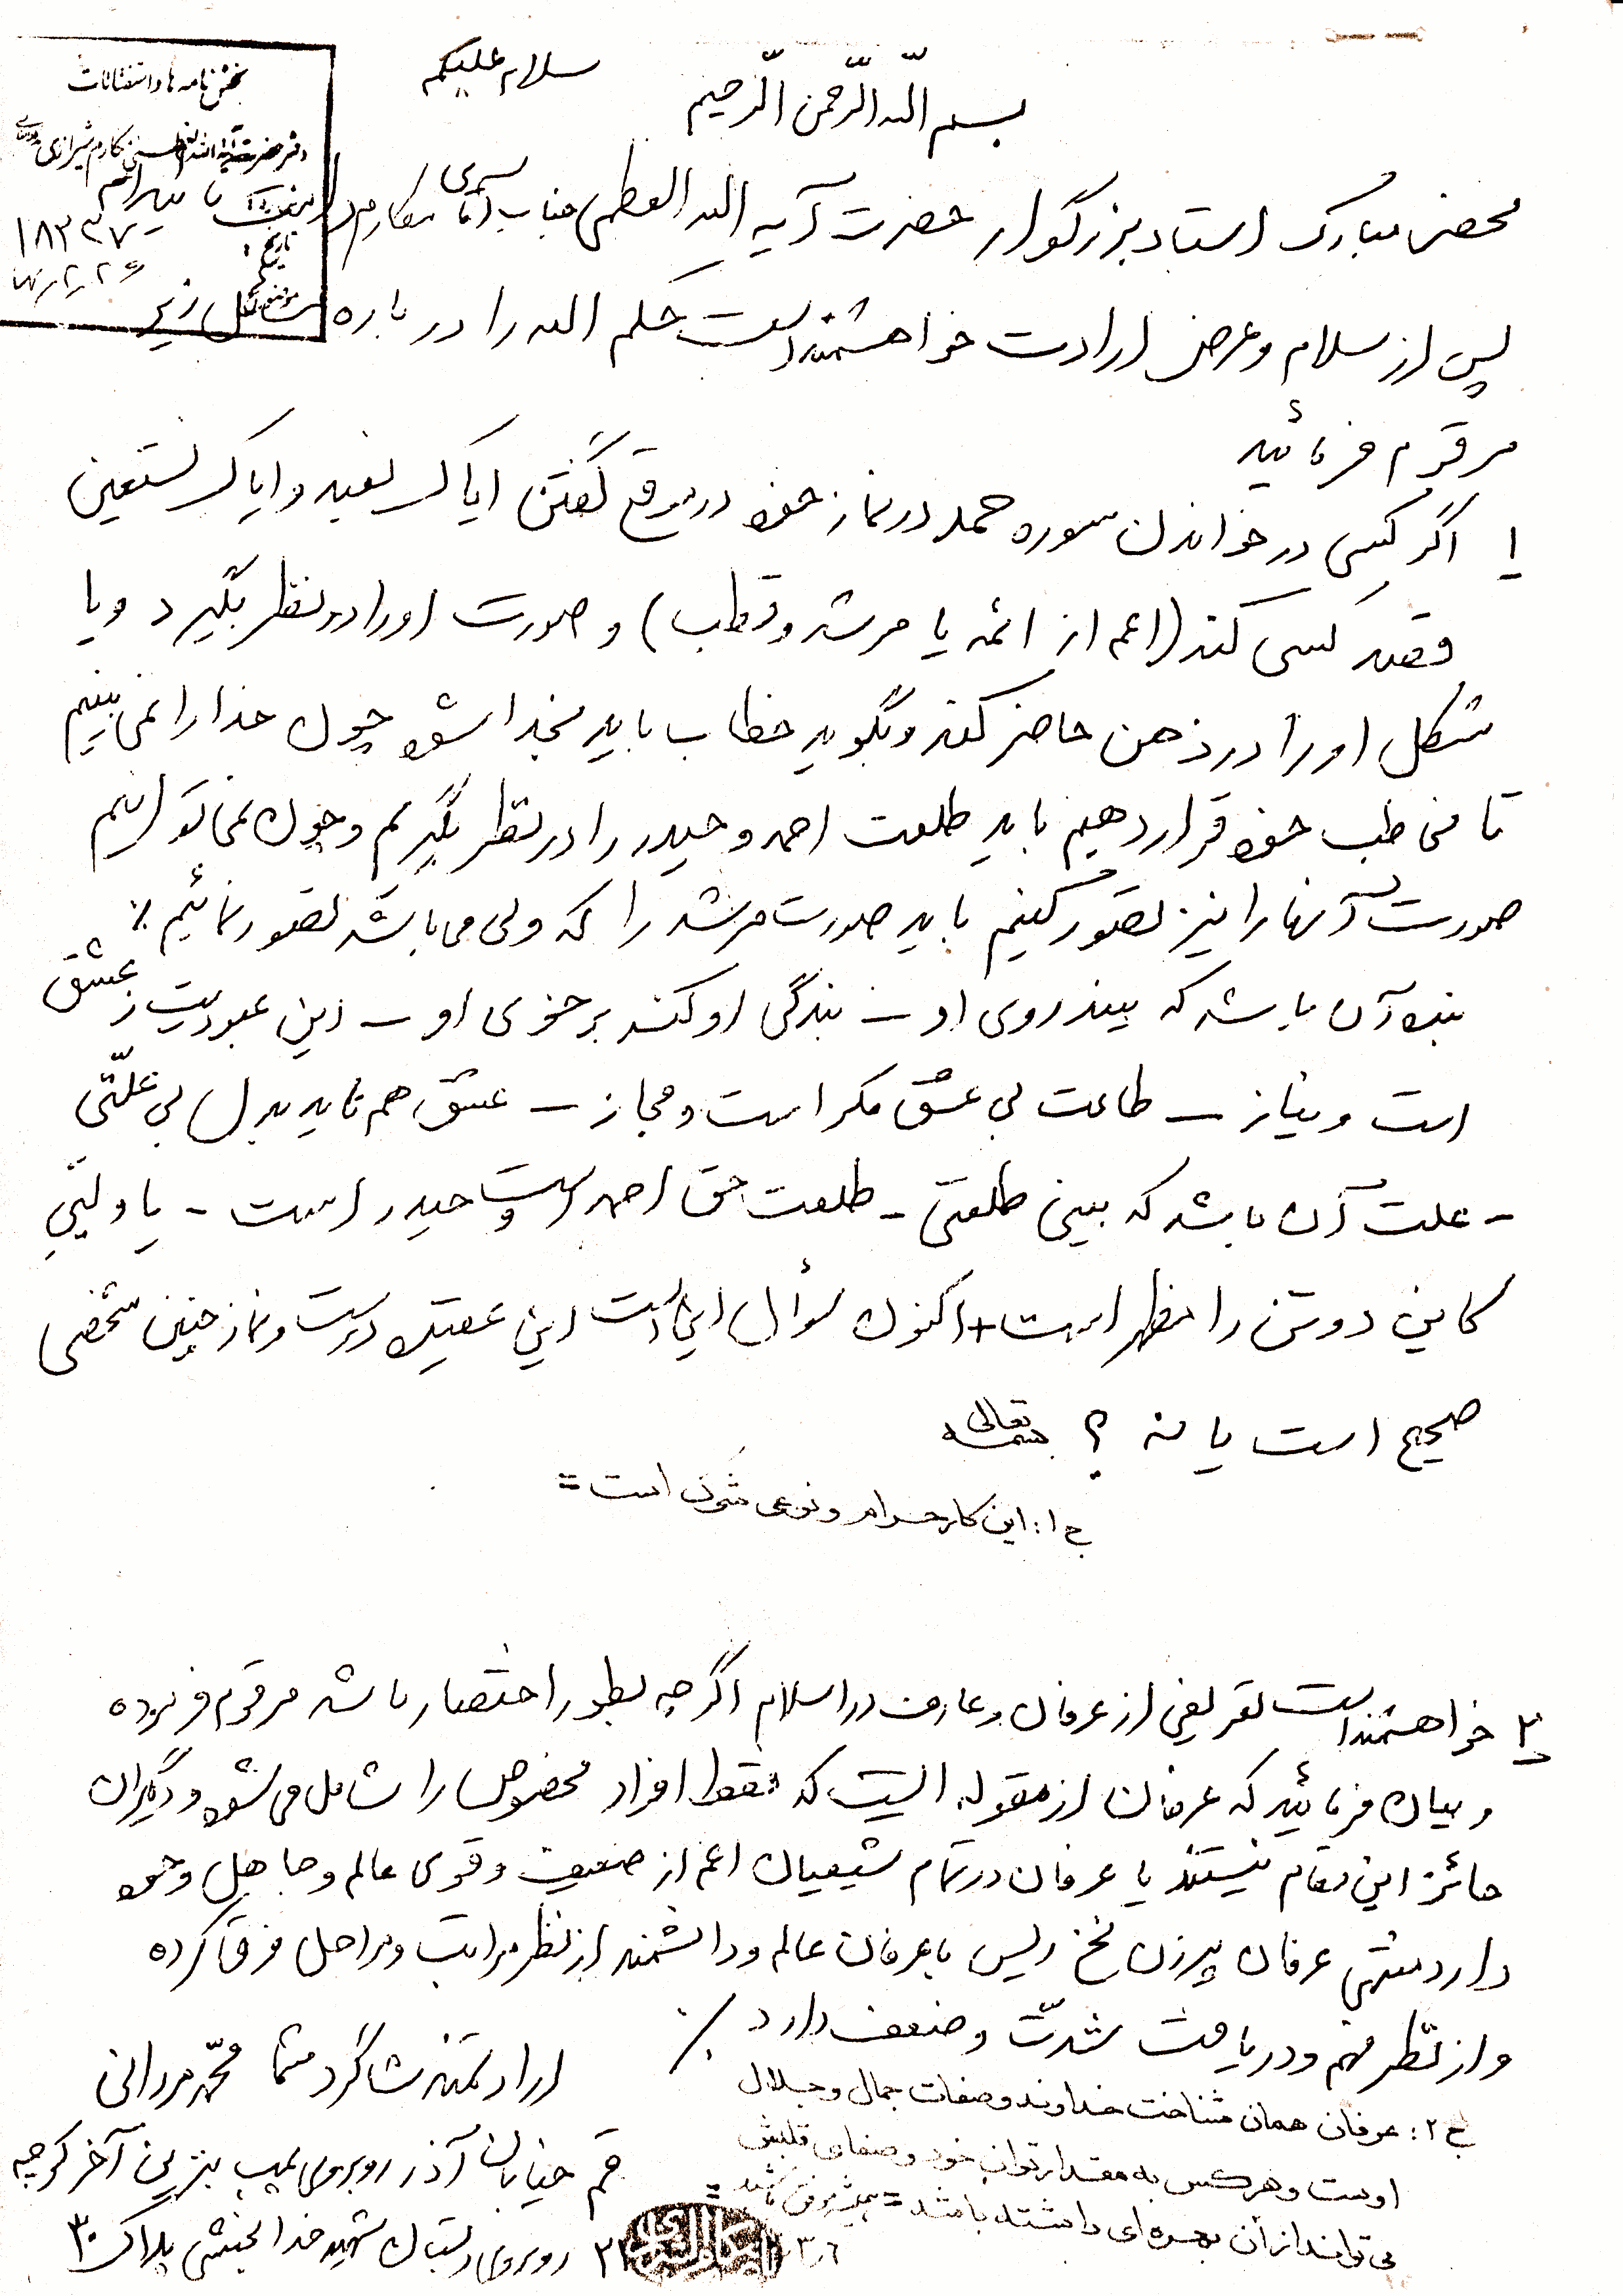 بخش نامه ها و استفتائات
دفتر حضرت آیة الله العظمی مکارم شیرازی
۱۸۲۳۷
تاریخ:
موضوع:
سلام علیکم
بسم الله الرّحمن الرّحیم
محضر مبارک استاد بزرگوار حضرت آیه الله العظمی جناب آقای مکارم
پس از سلام و عرض ارادت خواهشمند است حکم الله را در باره مسائل زیر
مرقوم فرمائید
۱ اگر کسی در خواندن سوره حمد در نماز خود در موقع گفتن ایاک نعبد و ایاک نستعین
قصد کسی کند (اعم از ائمه یا مرشد و قطب) و صورت او را در نظر بگیرد و یا
شکل او را در ذهن حاضر کند و بگوید خطاب باید بخدا شود چون خدا را نمی بینیم
تا مخاطب خود قرار دهیم باید طلعت احمد و حیدر را در نظر بگیریم و چون نمی توانیم
صورت آنها را نیز تصور کنیم باید صورت مرشد را که ولی می باشد تصور نمائیم ٪
بنده آن باشد که بیند روی او ـ بندگی او کند بر خوی او ـ این عبودیت ز عشق
است و نیاز ـ طاعت بی عشق مکر است و مجاز ـ عشق هم ناید بدل بی علّتی
ـ علت آن باشد که بینی طلعتی ـ طلعت حق احمد است و حیدر است ـ یا ولیّی
کاین دوتن را مظهر است + اکنون سؤال این است این عقیده درست و نماز چنین شخصی
صحیح است یا نه ؟ بسمه تعالی
ج ۱: این کار حرام و نوعی شرک است =
۲ خواهشمند است تعریفی از عرفان و عارف در اسلام اگر چه بطور اختصار باشد مرقوم فرموده
و بیان فرمائید که عرفان از مقوله ایست که فقط افراد مخصوص را شامل می شود و دیگران
حائز این مقام نیستند یا عرفان در تمام شیعیان اعم از ضعیف و قوی عالم و جاهل وجود
دارد منتهی عرفان پیرزن نخ ریس با عرفان عالم و دانشمند از نظر مراتب و مراحل فرق کرده
و از نظر فهم و دریافت شدّت و ضعف دارد ٪
ارادتمند شاگرد شما محمّد مردانی
قم خیابان آذر روبروی پمپ بنزین آخر کوچه
روبروی دبستان شهید خدابخشی پلاک ۳۰
ج ۲: عرفان همان شناخت خداوند و صفات جمال و جلال
اوست و هر کس به مقدار توان خود و صفای قلبش
می تواند از آن بهره ای داشته باشد = همیشه موفق باشید =